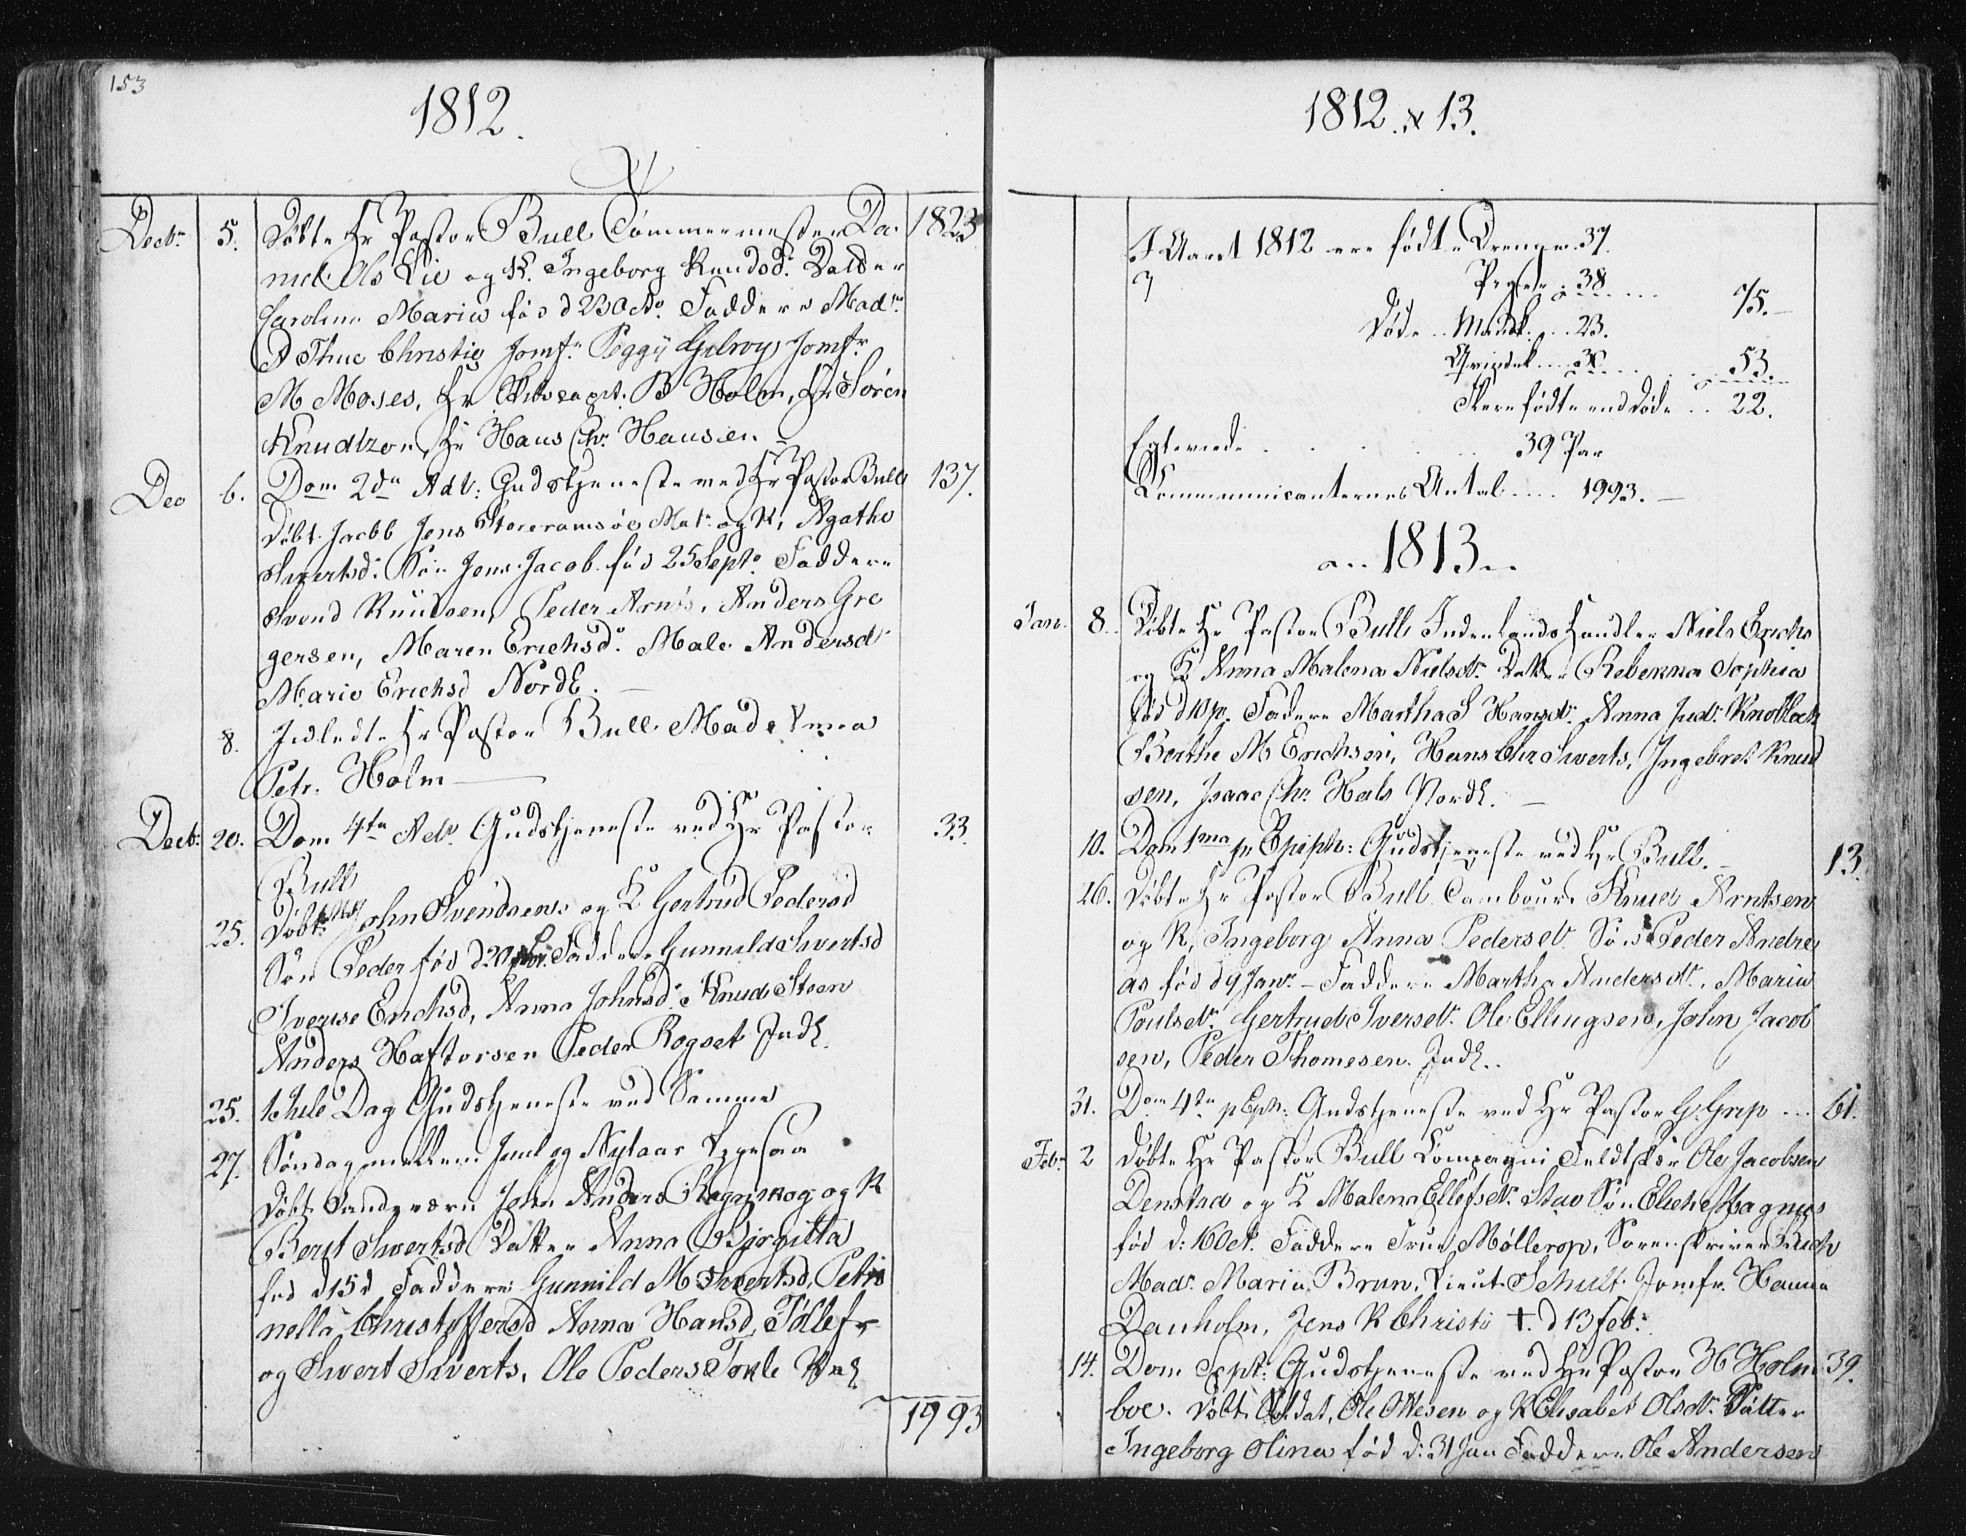 153
1812.
Decbr 5. Døbte Hr Pastor Bull Tømmermester Da 1823
niel Ols Lie og K. Ingeborg Knudsd: Datter
Caroline Maria fød d 23 Octo. Faddere Mad:
D Thue Christie Jomfr Peggy Gelroy Jomfr
M Moses, Hr Skibscapt. B Holm, Hr Søren
Knudtzon, Hr Hans Chr. Hansen
Dec 6. Dom 2da Adv: Gudstjeneste ved Hr Pastor Bull 137.
Døbt Jacob Jens Storeramsøe Mat: og K, Agathe
Sivertsd: Søn Jens Jacob fød 25 Septr Faddere
Svend Knudsen, Peder Arnts, Anders Gre
gersen, Maren Erichsd: Male Andersd:
Marie Erichsd Nordl.
8. Indledte Hr Pastor Bull Mad Anna
Petr. Holm
Decbr: 20. Dom 4ta Adv. Gudstjeneste ved Hr Pastor 33.
Bull
25. Døbt John Svendsens og K Gertrud Pedersd
Søn Peder fød d 20 Faddere Gunnild Sivertsd
Iverine Erichsd, Anna Johnsd: Knud Steen
Anders Haftorsen Peder Rogset Indl.
25. 1 Jule Dag Gudstjeneste ved Samme
27. Søndag mellem Juul og Nytaar Ligesaa
Døbt Landværn John Anders og K
Berit Sivertsd Datter Anna Birgitta
fød d 15 d Faddere: Gunnild M Sivertsd, Petro
nella Christoffersd Anna Hansd, Tollef
og Sivert Siverts, Ole Peders
1993
1812. & 13.
I Aaret 1812 ere fødte Drenger 37.
Piger. 38 75.
Døde Mandk. 23.
Qvindek 30 53.
Flere fødte end døde 22.
Egteviede 39 Par
Communicanternes Antal 1993.
1813
Jan. 8. Døbte Hr Pastor Bull Indenlands Handler Niels Erichs
og K Anna Malena Nielsdr. Datter Rebekka Sophia
fød d 10 p. Faddere Martha S Hansdr. Anna Judr. Knoblock
Berthe M Erichsen, Hans Chr Siverts, Ingebret Knud
sen, Isaac Chr. Hals Nordl.
10. Dom 1ma p Epiph: Gudstjeneste ved Hr Bull. 13.
26. Døbte Hr Pastor Bull Tambour Knud Arntsen
og K, Ingeborg Anna Pedersdr. Søn Peder Andre
as fød d 9 Janr. Faddere Martha Andersdr., Maria
Poulsdr. Gertrud Iversdr. Ole Ellingsen, John Jacob
sen, Peder Thomesen. Indl.
31. Dom 4ta p Eph: Gudstjeneste ved Hr Pastor G. Grip 61.
Febr 2 Døbte Hr Pastor Bull Compagni Feldtskær Ole Jacobsen
Denstad og K Malena Ellefsdr. Stav Søn Magnus
fød d: 16 Oct. Faddere Frue Møllerop, Sorenskriver
Madr. Maria Brun, Lieut: Schult. Jomfr. Hanna
Danholm, Jens K Christie †. d 13 Febr.
14. Dom Sept: Gudstjeneste ved Hr Pastor H Holm 39.
boe. Døbt Soldat, Ole Ottesen og K Elisabet Olsdr. Datter
Ingeborg Olina fød d: 31 Jan Faddere Ole Andersen